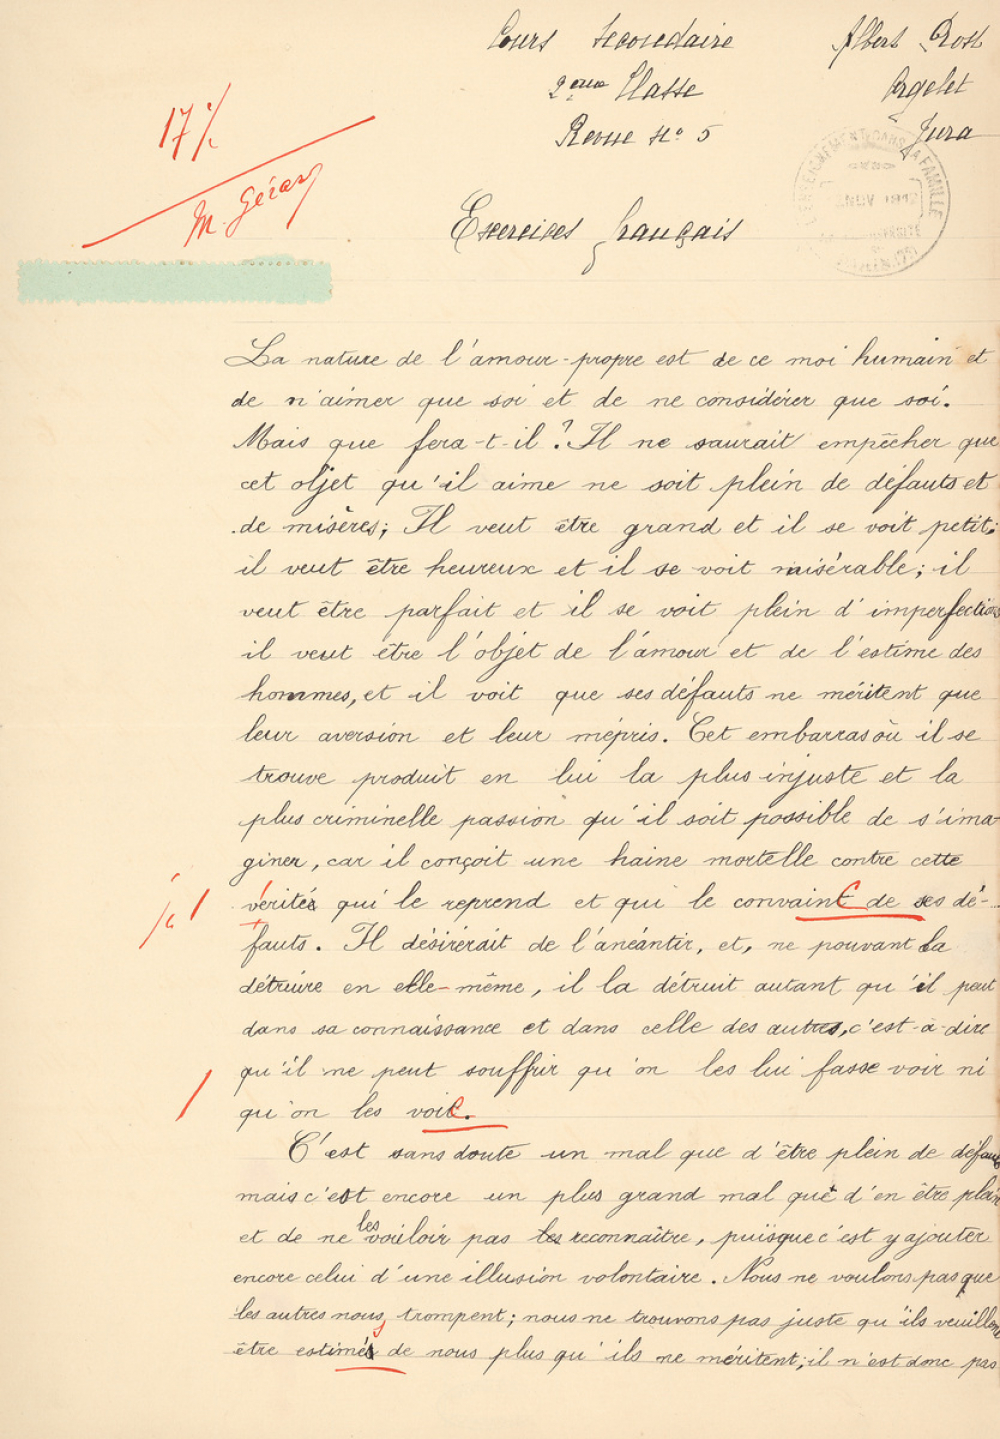 Cours Secondaire
Albert Prost
2ème Classe
Orgelet
Revue No 5
Jura
17 1/2
M. Gérard
ENSEIGNEMENT DANS LA FAMILLE
NOV 1912
Exercices français
La nature de l'amour-propre est de ce moi humain et
de n'aimer que soi et de ne considérer que soi.
Mais que fera-t-il ? Il ne saurait empêcher que
cet objet qu'il aime ne soit plein de défauts et
de misères; Il veut être grand et il se voit petit;
il veut être heureux et il se voit misérable; il
veut être parfait et il se voit plein d'imperfections
il veut être l'objet de l'amour et de l'estime des
hommes, et il voit que ses défauts ne méritent que
leur aversion et leur mépris. Cet embarras où il se
trouve produit en lui la plus injuste et la
plus criminelle passion qu'il soit possible de s'ima-
giner, car il conçoit une haine mortelle contre cette
vérité qui le reprend et qui le convainc de ses dé-
fauts. Il désirerait de l'anéantir, et, ne pouvant la
détruire en elle-même, il la détruit autant qu'il peut
dans sa connaissance et dans celle des autres, c'est-à-dire
qu'il ne peut souffrir qu'on les lui fasse voir ni
qu'on les voie.
C'est sans doute un mal que d'être plein de défauts
mais c'est encore un plus grand mal que d'en être plein
et de ne les vouloir pas les reconnaître, puisque c'est y ajouter
encore celui d'une illusion volontaire. Nous ne voulons pas que
les autres nous trompent; nous ne trouvons pas juste qu'ils veuillent
être estimés de nous plus qu'ils ne méritent; il n'est donc pas